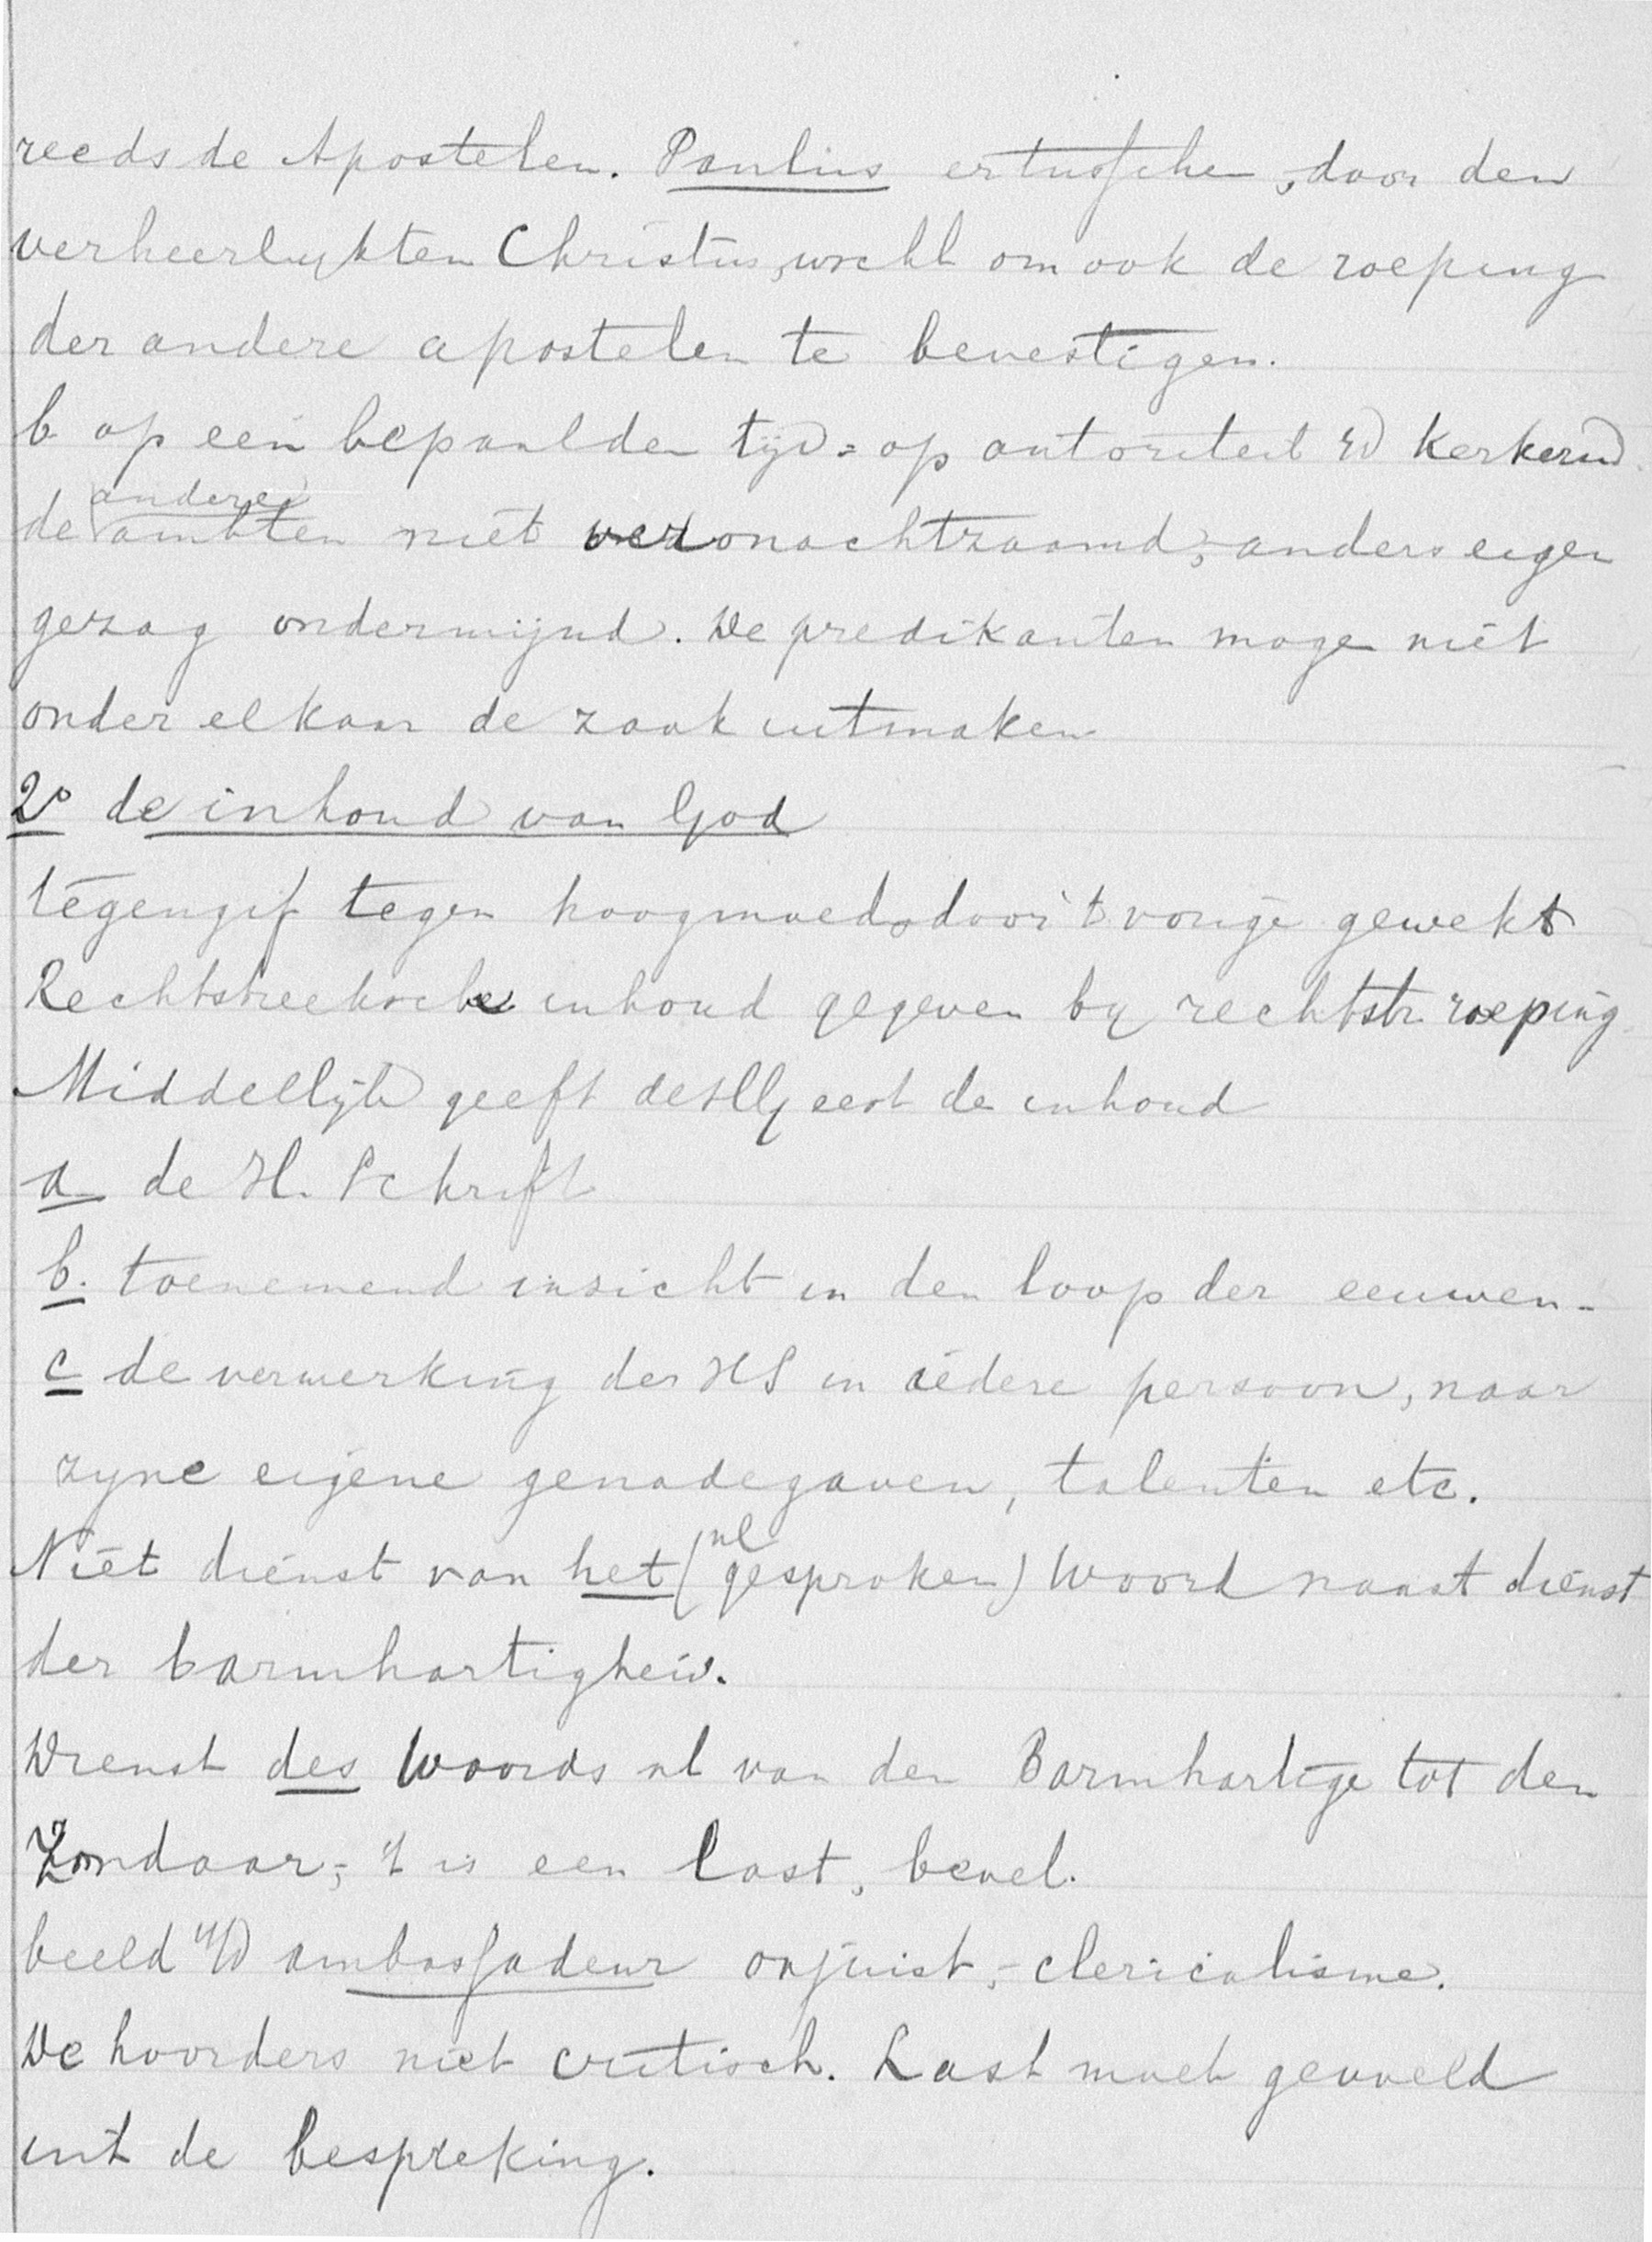 reeds de Apostelen. Paulus ertussche, door den
verheerlykten Christus, wschl om ook de roeping
der andere apostelen te bevestigen.
b op een bepaalden tijd = op autoriteit vd Kerk en
de andere ambten niet veronachtzaamd, anders eigen
gezag ondermijnd. De predikanten mogen niet
onder elkaar de zaak uitmaken
2o de inhoud van God
tegengif tegen hoogmoed door 't vorige gewekt
Rechtstreeksche inhoud gegeven by rechtstr. roeping
Middellijk geeft de HGeest de inhoud
a de H. Schrift
b. toenemend inzicht in den loop der eeuwen -
c de verwerking der HS in iedere persoon, naar
zyne eigene genadegaven, talenten etc.
Niet dienst van het (nl gesproken) Woord naast dienst
der barmhartigheid.
Dienst des Woords nl van den Barmhartige tot den
Zondaar, 't is een last, bevel.
beeld v/d ambassadeur onjuist, - clericalisme.
De hoorders niet critisch. Last moet gevoeld
uit de bespreking.